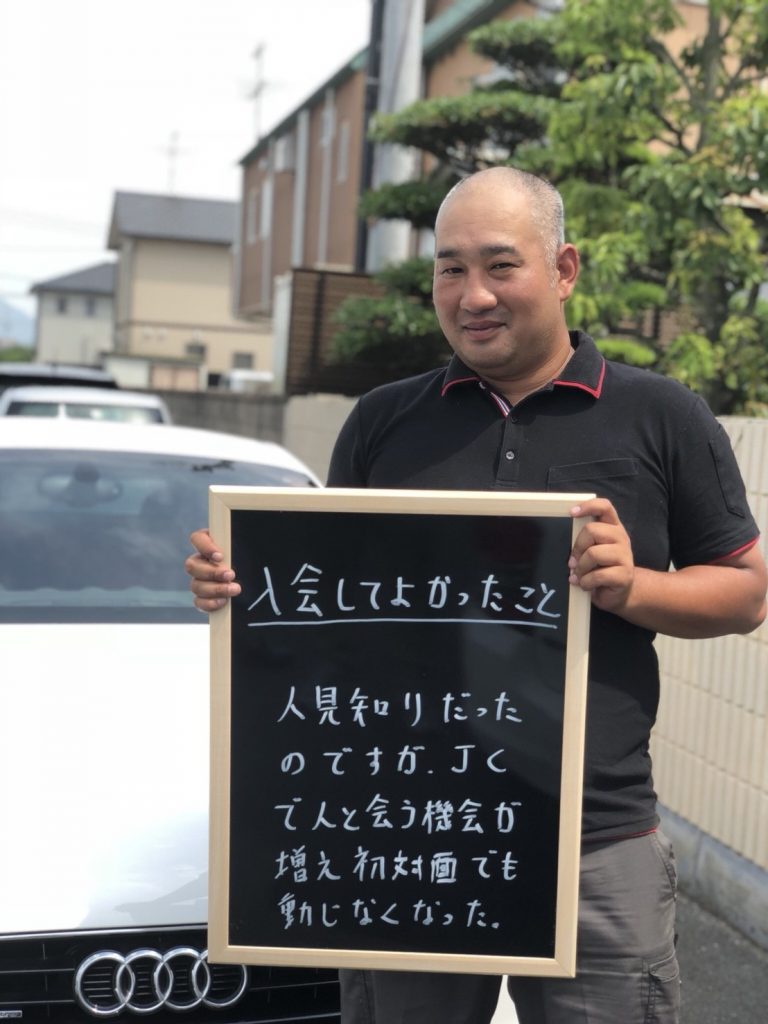 入会してよかったこと
人見知りだった
のですが、JC
で人と会う機会が
増え初対面でも
動じなくなった。